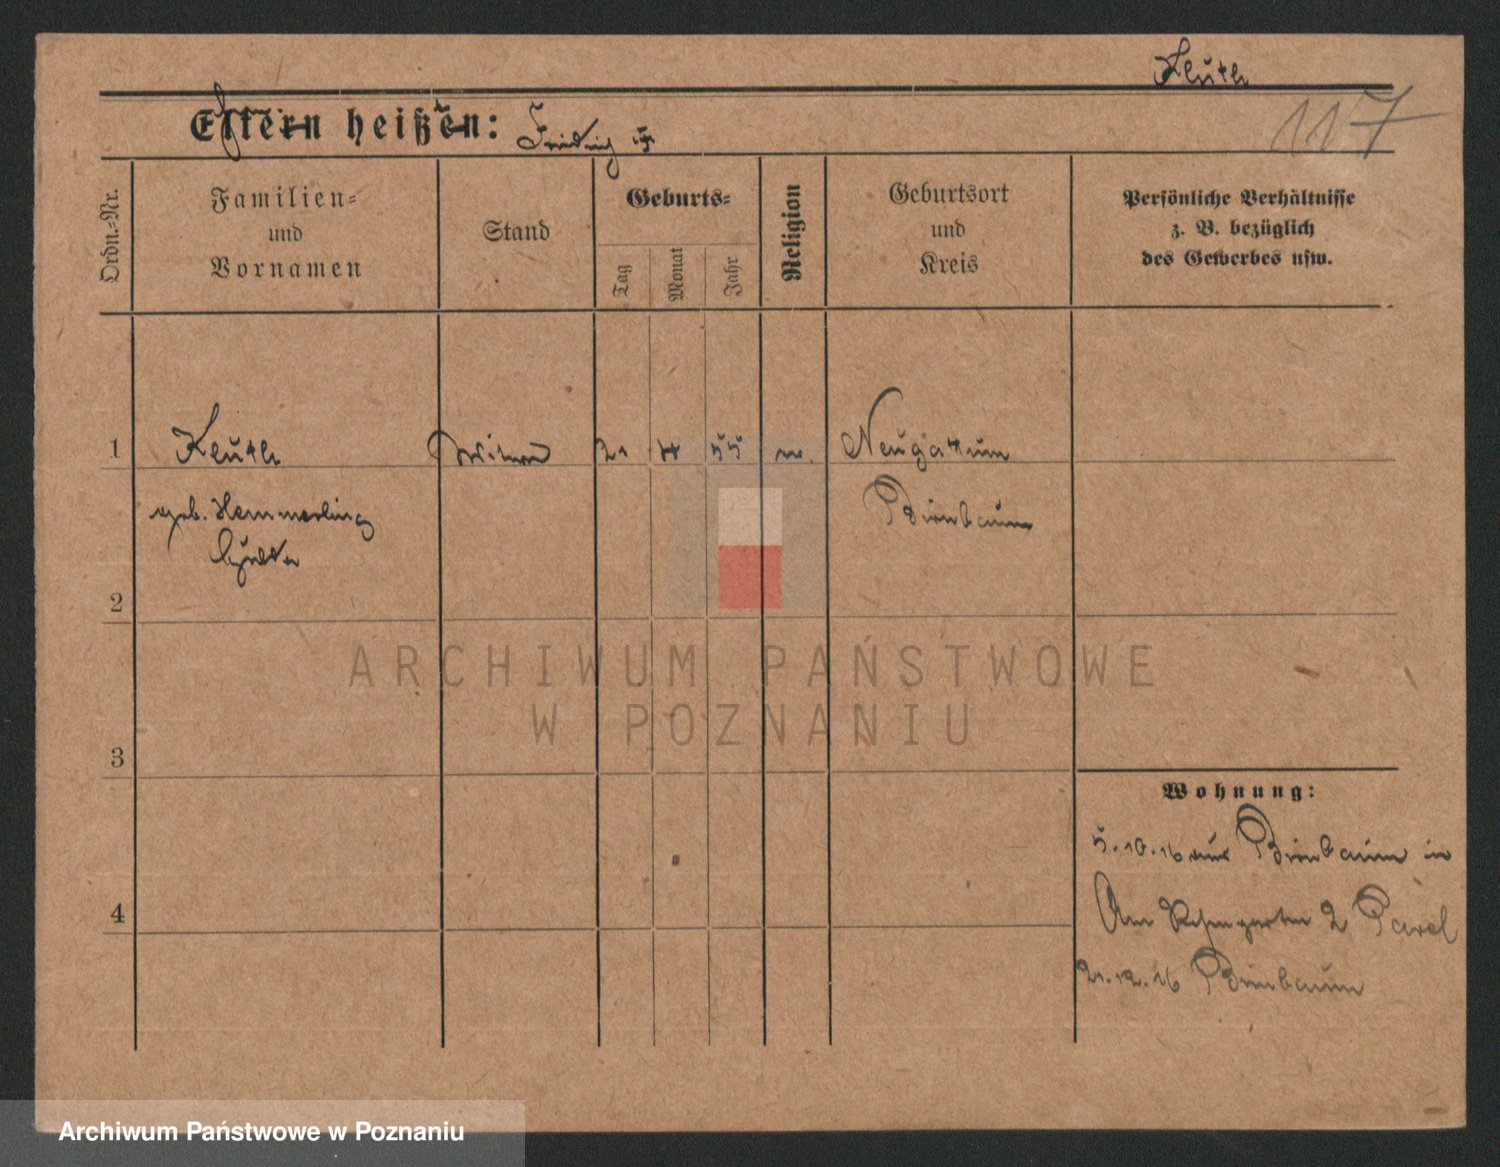 Kluth
117
Eltern heißen:
Ordn.-Nr.
Familien-
und
Vornamen
Stand
Geburts-
Tag
Monat
Jahr
Religion
Geburtsort
und
Kreis
Persönliche Verhältnisse
z. B. bezüglich
des Gewerbes usw.
1 Kluth 21 4 55
geb. Hemmerling
Birnbaum
2
3
4
Wohnung:
5.10.16 aus Birnbaum in
Am 2
21.12.16 Birnbaum
ARCHIWUM PAŃSTWOWE
W POZNANIU
Archiwum Państwowe w Poznaniu